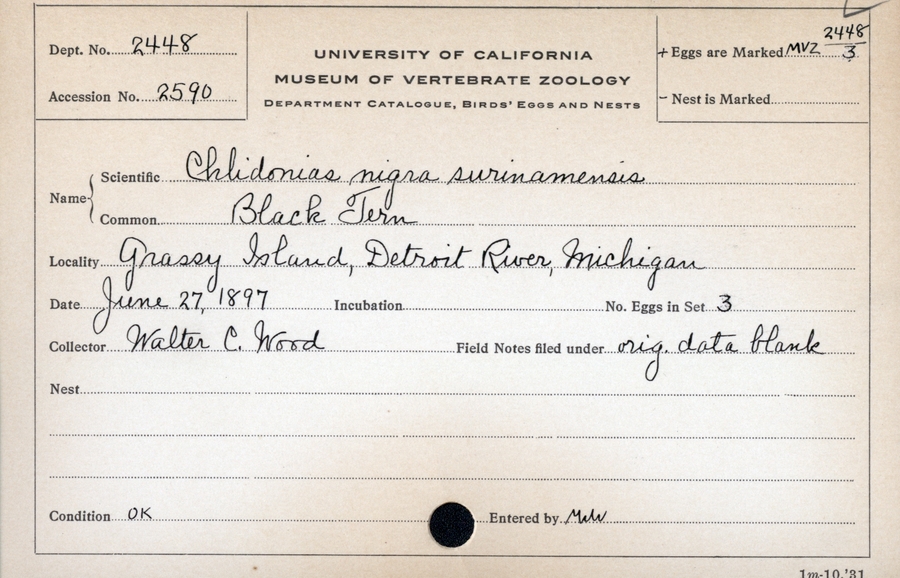 Dept. No. 2448
Accession No. 2590
UNIVERSITY OF CALIFORNIA
MUSEUM OF VERTEBRATE ZOOLOGY
DEPARTMENT CATALOGUE, BIRDS' EGGS AND NESTS
+ Eggs are Marked MVZ 2448/3
- Nest is Marked
Name
Scientific Chlidonias nigra surinamensis
Common Black Tern
Locality Grassy Island, Detroit River, Michigan
Date June 27, 1897 Incubation No. Eggs in Set 3
Collector Walter C. Wood Field Notes filed under orig. data blank
Nest
Condition OK Entered by
1m-10,'31